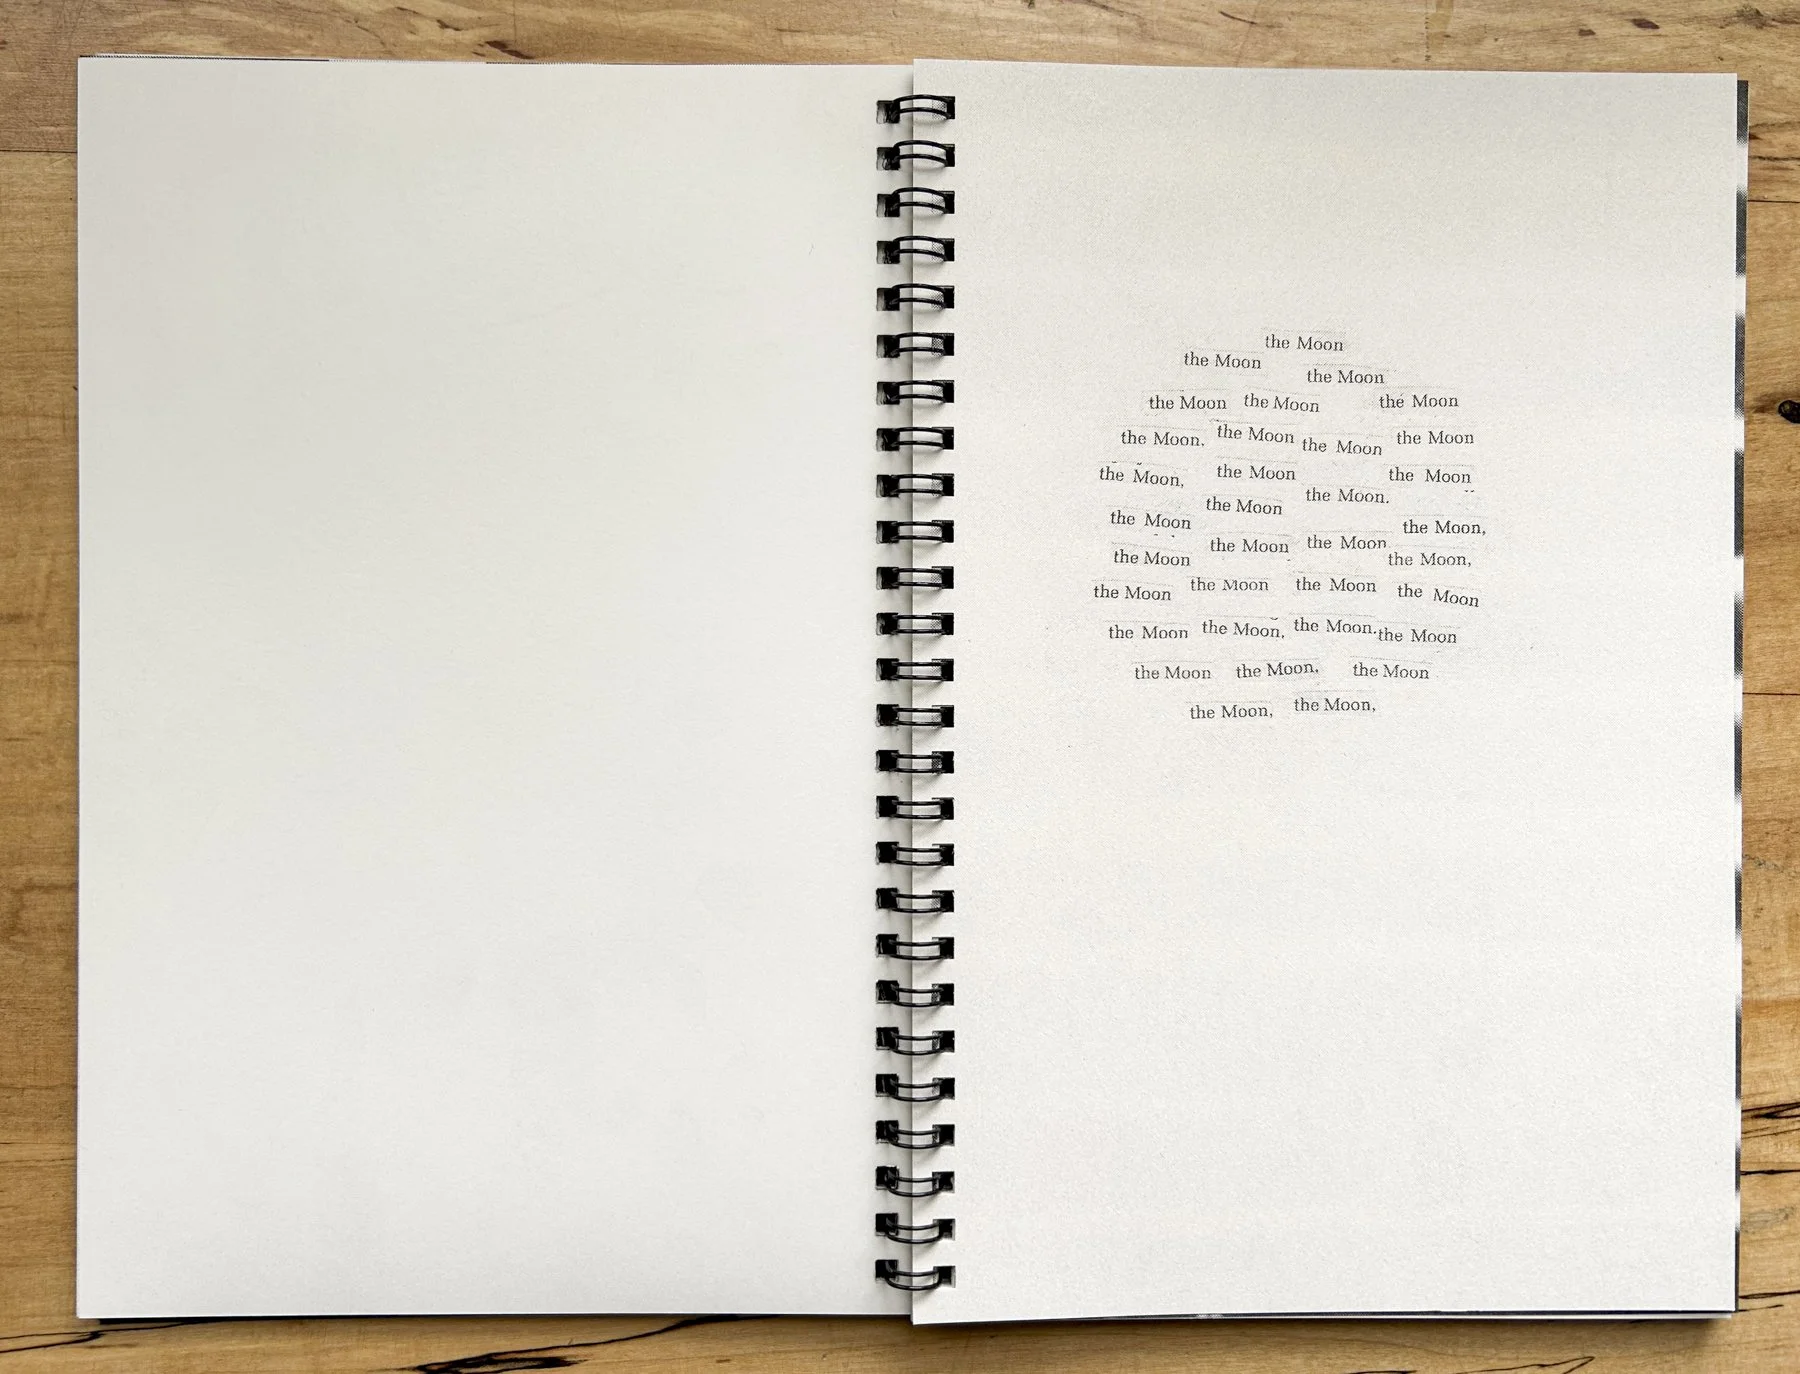 the Moon
the Moon
the Moon
the Moon the Moon the Moon
the Moon, the Moon the Moon the Moon
the Moon, the Moon the Moon
the Moon.
the Moon the Moon the Moon,
the Moon the Moon the Moon the Moon,
the Moon the Moon the Moon the Moon
the Moon the Moon, the Moon. the Moon
the Moon the Moon, the Moon
the Moon, the Moon,